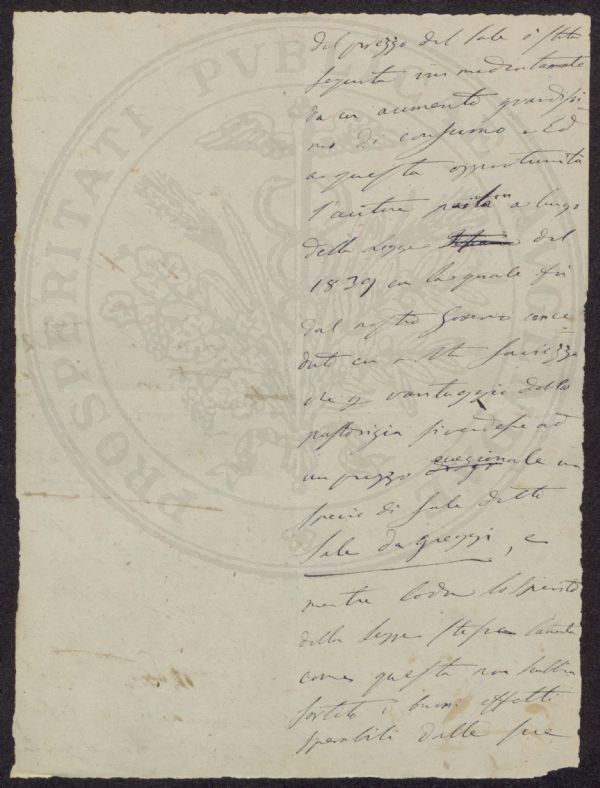 del prezzo del sale è stata
seguita immediatamente
da un aumento grandissi
mo di consumo. Ed
a questa opportunità
l'autore parla a lungo
della Legge del
1839 con la quale fu
dal nostro Governo conce
duto con molta saviezza
che a vantaggio della
pastorizia si vendesse ad
un prezzo eccezionale una
specie di sale detto
Sale da greggi, e
mentre loda lo spirito
della Legge stessa lamenta
come questa non abbia
sortito i buoni effetti
sperabili dalle sue
PROSPERITATI PUBLICAE AUGENDAE